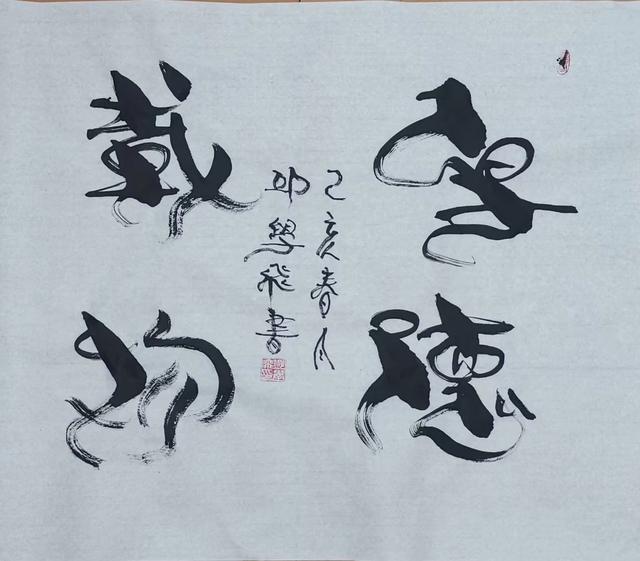 厚德
載物
己亥春月
學飛書